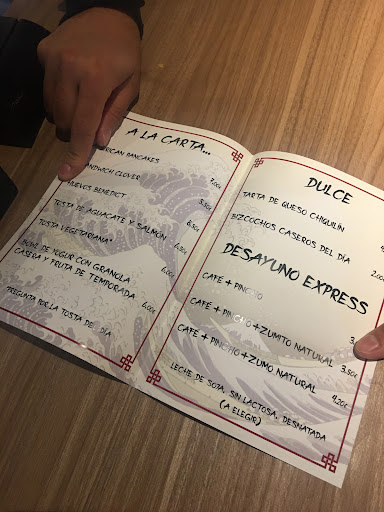 A LA CARTA...
PANCAKES
CLOVER
HUEVOS BENEDICT
TOSTA DE AGUACATE Y SALMÓN
TOSTA VEGETARIANA*
BOWL DE YOGUR CON GRANOLA
CASERA Y FRUTA DE TEMPORADA 6,00€
PREGUNTA POR LA TOSTA DEL DÍA
DULCE
TARTA DE QUESO CHIQUILÍN
BIZCOCHOS CASEROS DEL DÍA 2,00
DESAYUNO EXPRESS
CAFÉ + PINCHO
CAFÉ + PINCHO + ZUMITO NATURAL 3,50€
CAFÉ + PINCHO + ZUMO NATURAL 4,20€
LECHE DE SOJA, SIN LACTOSA, DESNATADA
(A ELEGIR)